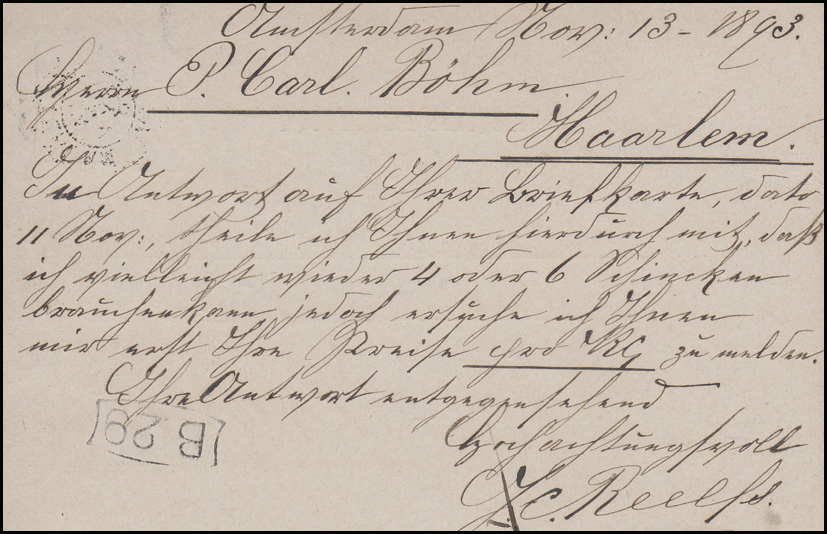 Amsterdam Nov: 13 - 1893.
Herrn P. Carl. Böhm
Haarlem.
In Antwort auf Ihrer Briefkarte, dato
11 Nov:, theile ich Ihnen hierdurch mit, daß
ich vielleicht wieder 4 oder 6 Schincken
brauchen kann, jedoch ersuche ich Ihnen
mir erst Ihre Preise pro KG zu melden.
Ihre Antwort entgegensehend
Hochachtungsvoll
B 29